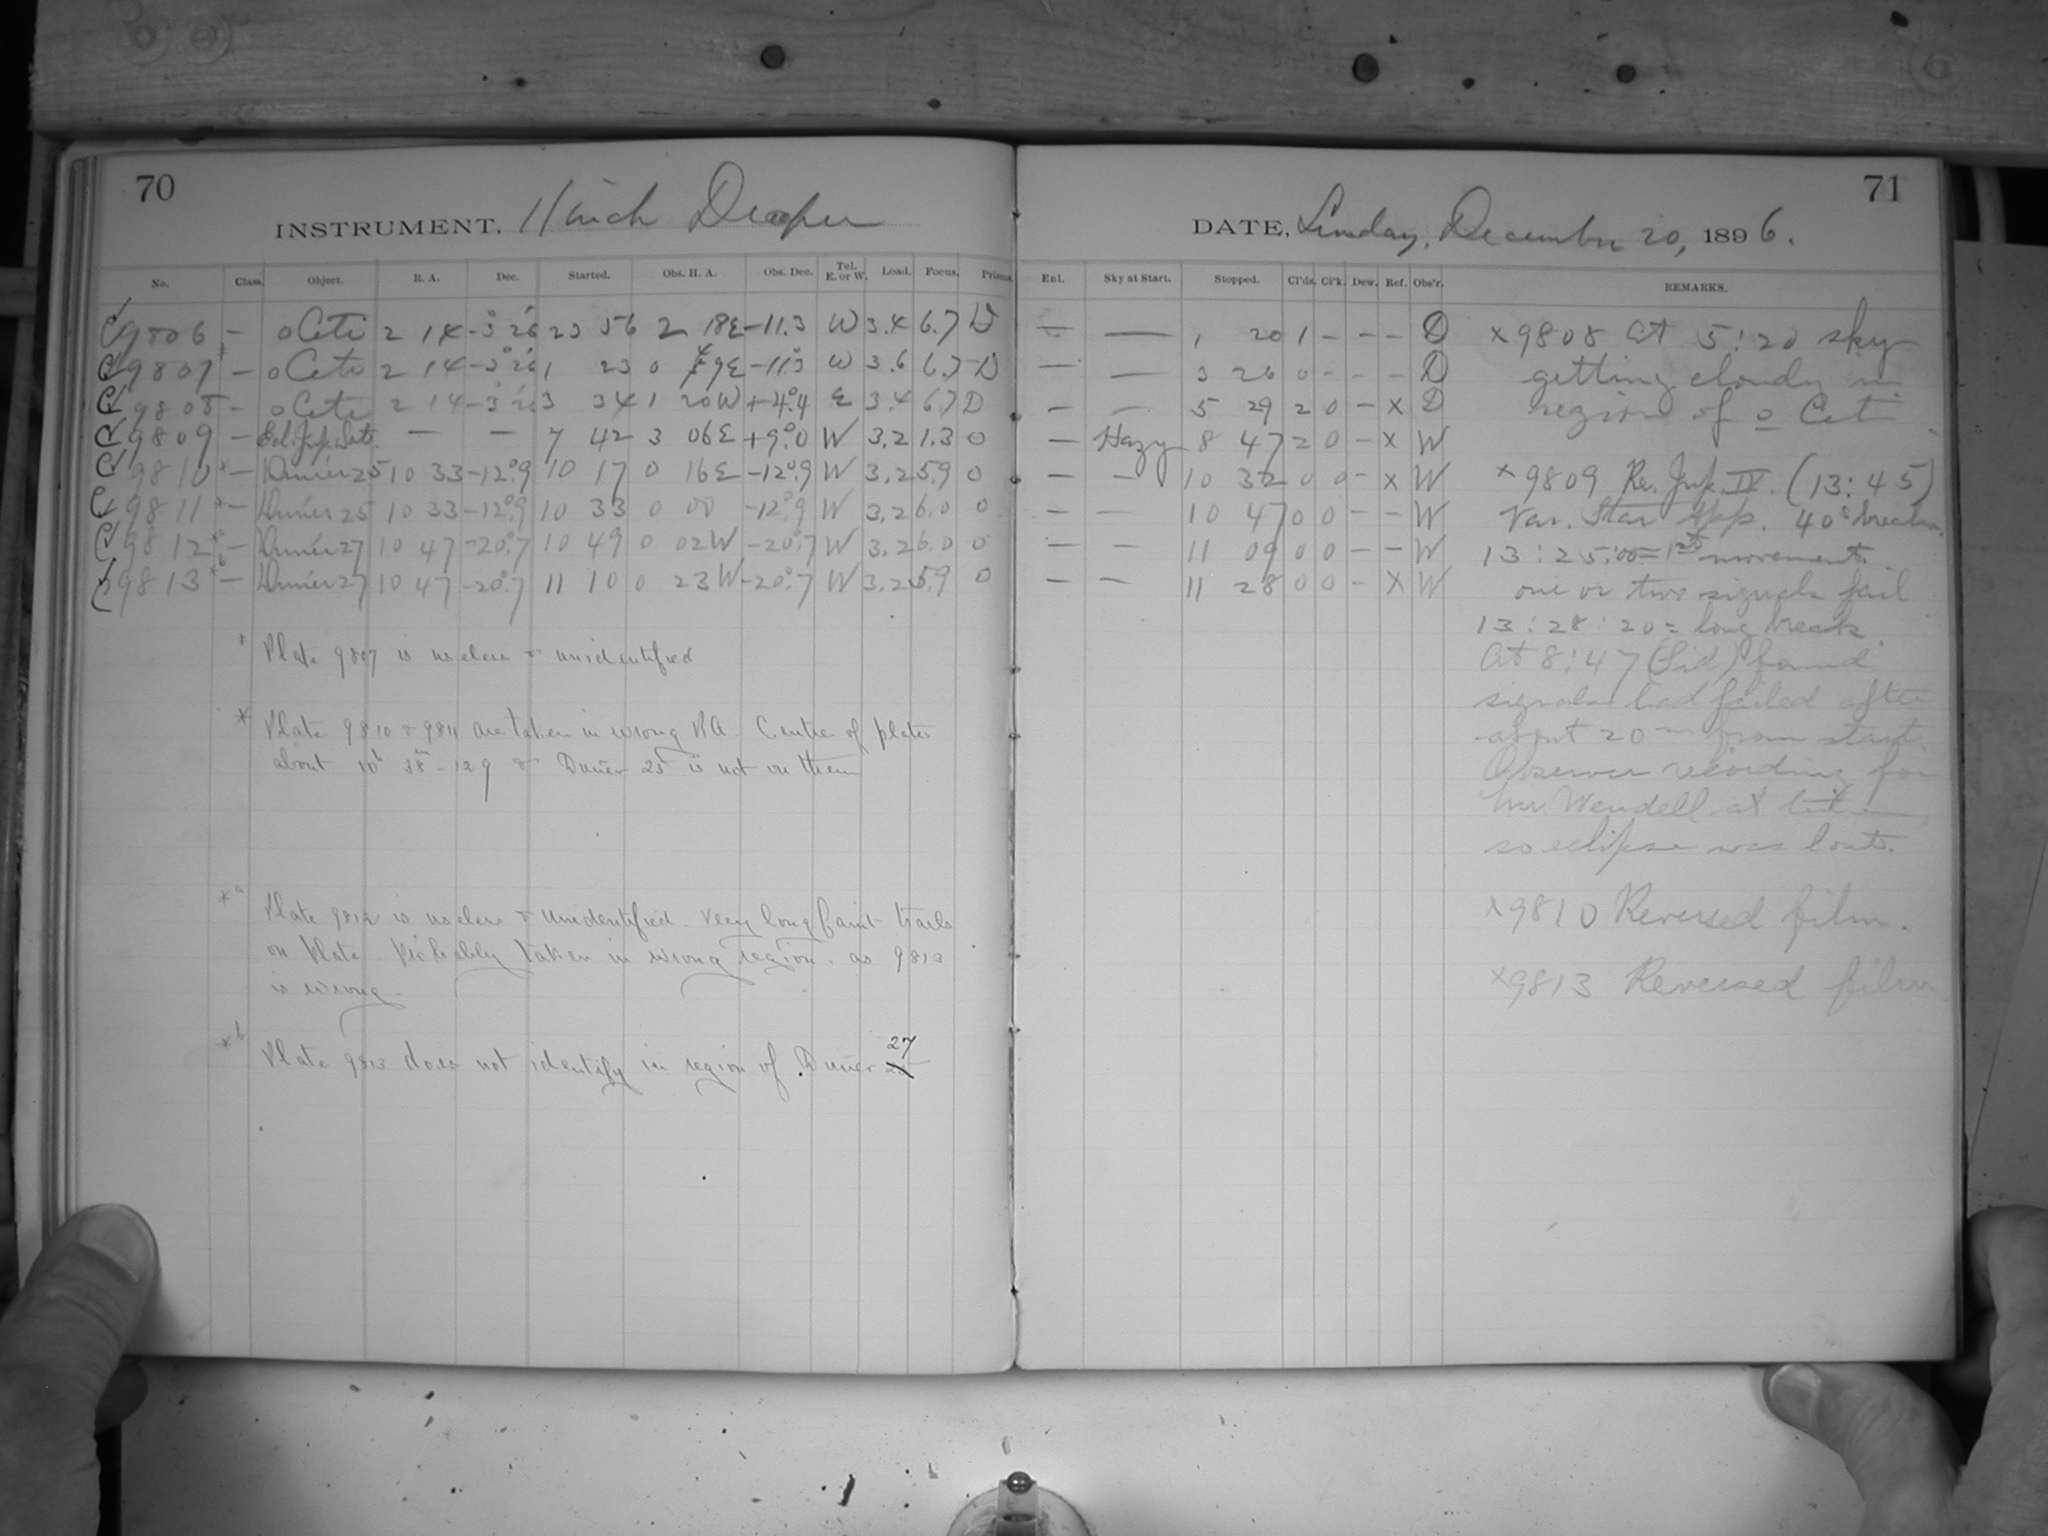 70
INSTRUMENT, 11 inch Draper
No. Class. Object. R. A. Dec. Started. Obs. H. A. Obs. Dec. Tel. E. or W. Load. Focus. Prisms.
C 9806 – o Ceti 2 14 -3° 26 23 56 2 18E -11.3 W 3.4 6.7 D
C 9807* – o Ceti 2 14 -3° 26 1 23 0 49E -11°3 W 3.6 6.7 D
C 9808 – o Ceti 2 14 -3° 26 3 34 1 20W +4°.4 E 3.4 6.7 D
C 9809 – Ecl. Jup. Sats. — — 7 42 3 06E +9°.0 W 3.2 1.3 0
C 9810* – Dunér 25 10 33 -12°.9 10 17 0 16E -12°.9 W 3.2 5.9 0
C 9811* – Dunér 25 10 33 -12°.9 10 33 0 00 -12°.9 W 3.2 6.0 0
C 9812*a – Dunér 27 10 47 -20°.7 10 49 0 02W -20°.7 W 3.2 6.0 0
C 9813*b – Dunér 27 10 47 -20°.7 11 10 0 23W -20°.7 W 3.2 5.9 0
* Plate 9807 is useless & unidentified
* Plate 9810 & 9811 are taken in wrong RA. Centre of plate
about 10h 38m -12 9 & Dunér 25 is not on them
*a Plate 9812 is useless & unidentified. Very long faint trails
on Plate. Probably taken in wrong region. as 9813
is wrong.
*b Plate 9813 does not identify in region of Dunér 27
71
DATE, Sunday, December 20, 1896.
Enl. Sky at Start. Stopped. Cl'ds. Cl'k. Dew. Ref. Obs'r. REMARKS.
— — 1 20 1 – – – D
— — 3 26 0 – – – D
— — 5 29 2 0 – X D
— Hazy 8 47 2 0 – X W
— — 10 32 0 0 – X W
— — 10 47 0 0 – – W
— — 11 09 0 0 – – W
— — 11 28 0 0 – X W
x9808 At 5:20 sky
getting cloudy in
region of o Ceti
x9809 Re. Jup. IV. (13:45)
Var. Star App. 40s breaks.
13:25:00 = 1st movement.
one or two signals fail
13:28:20 = long break.
At 8:47 (Sid) found
signals had failed after
about 20m from start.
Observer recording for
Mr. Wendell at time,
so eclipse was lost.
x9810 Reversed film.
x9813 Reversed film